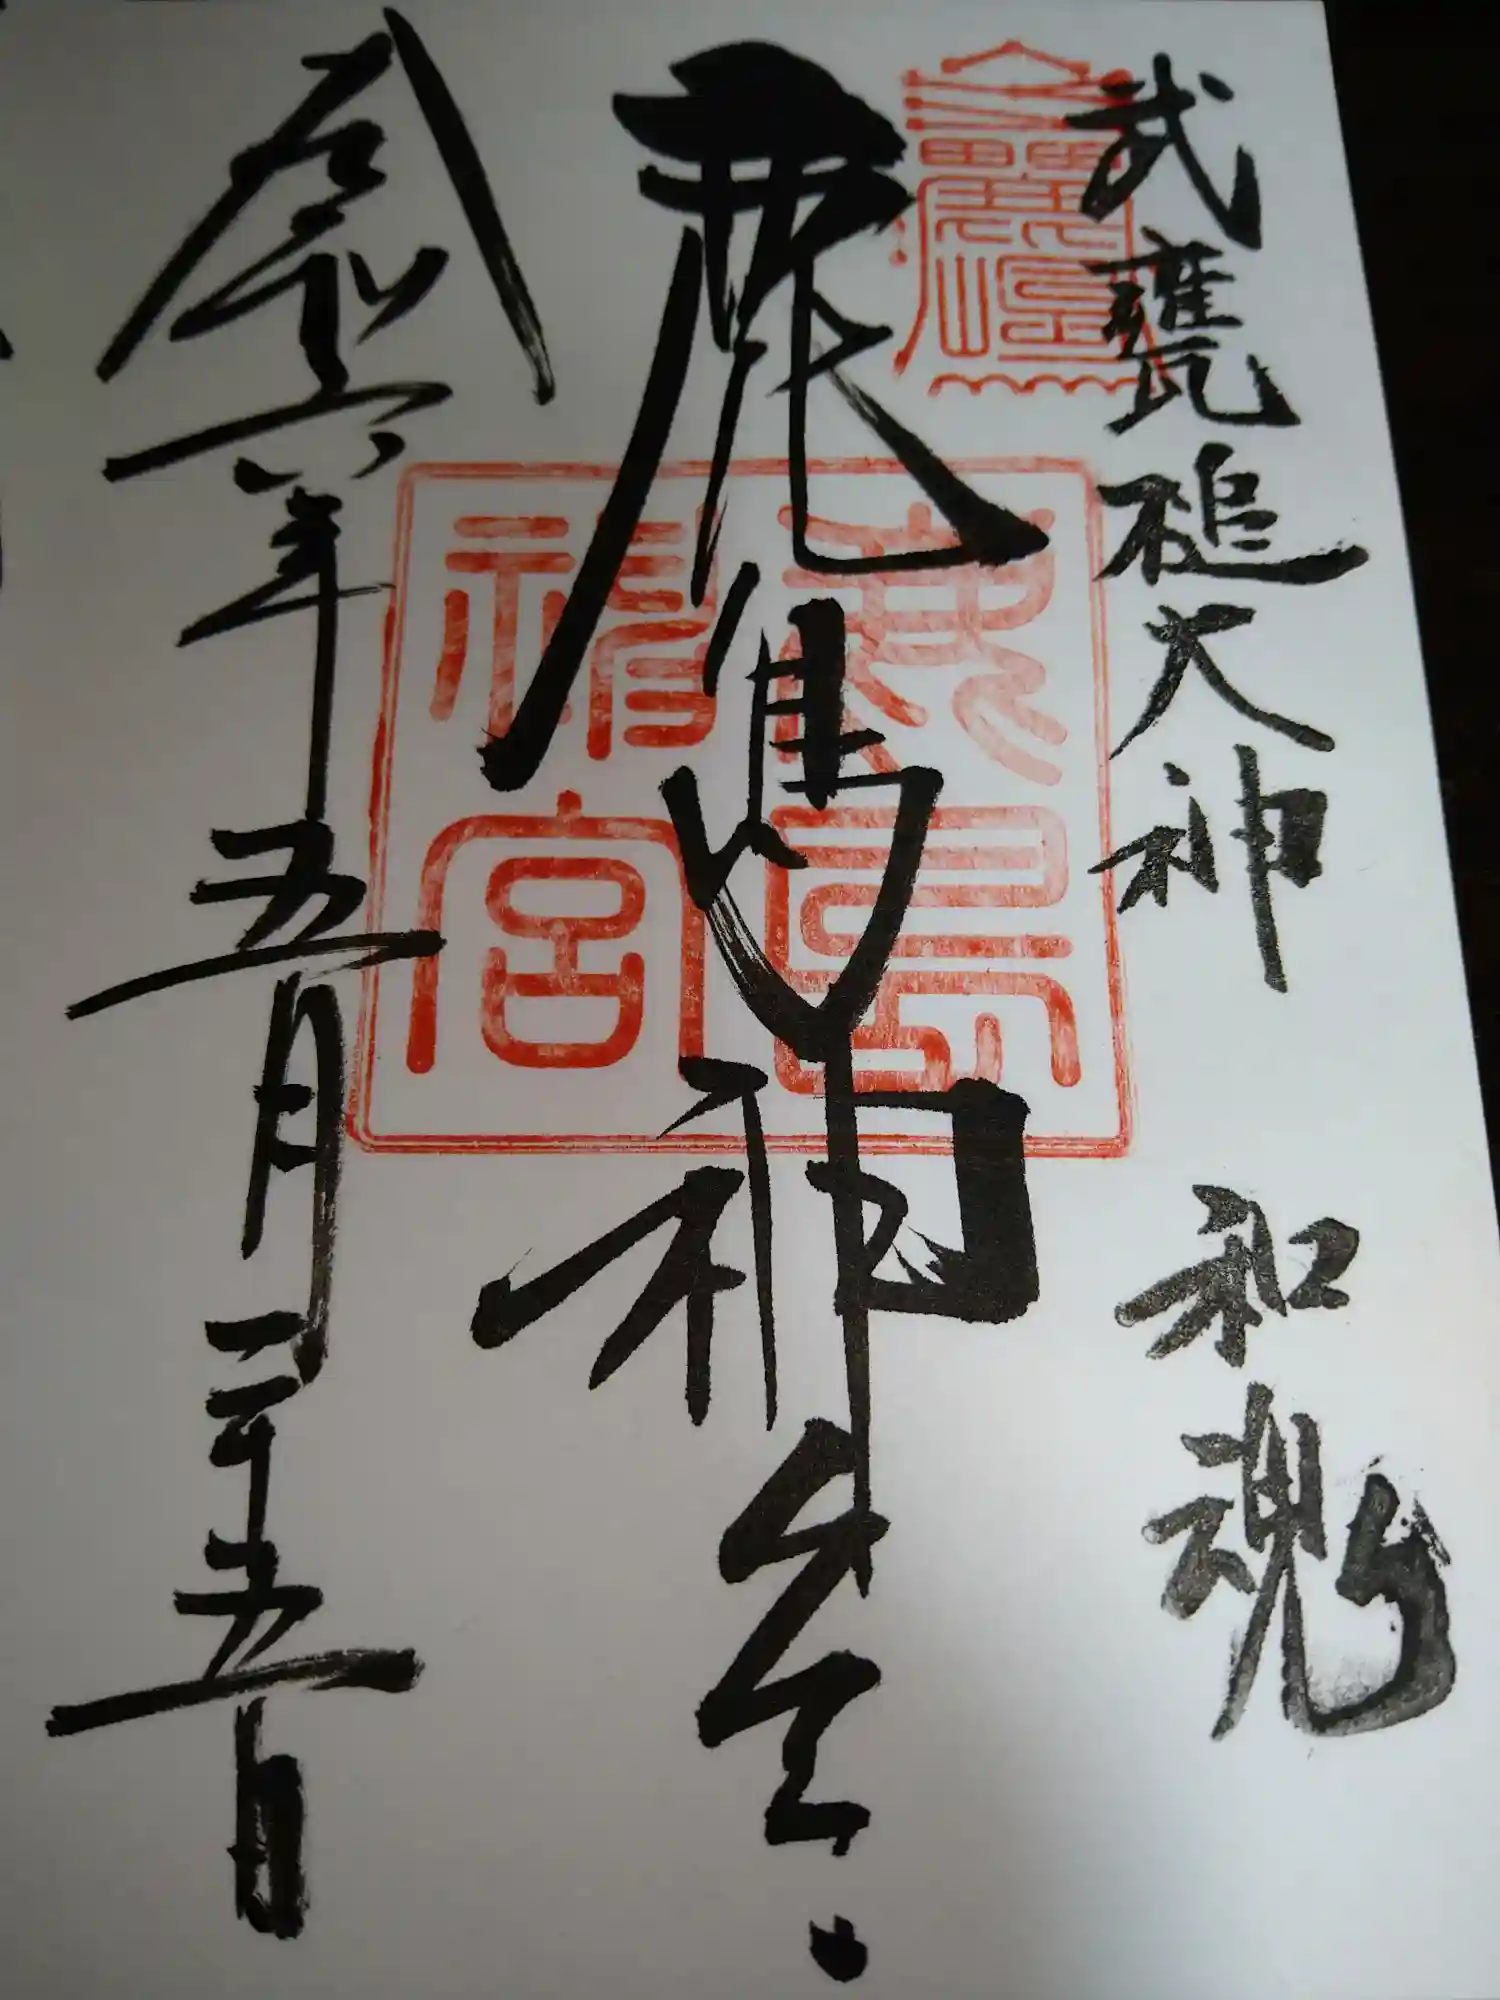 武甕槌大神　和魂
鹿島神宮
令和六年五月二十五日
鹿島
神宮